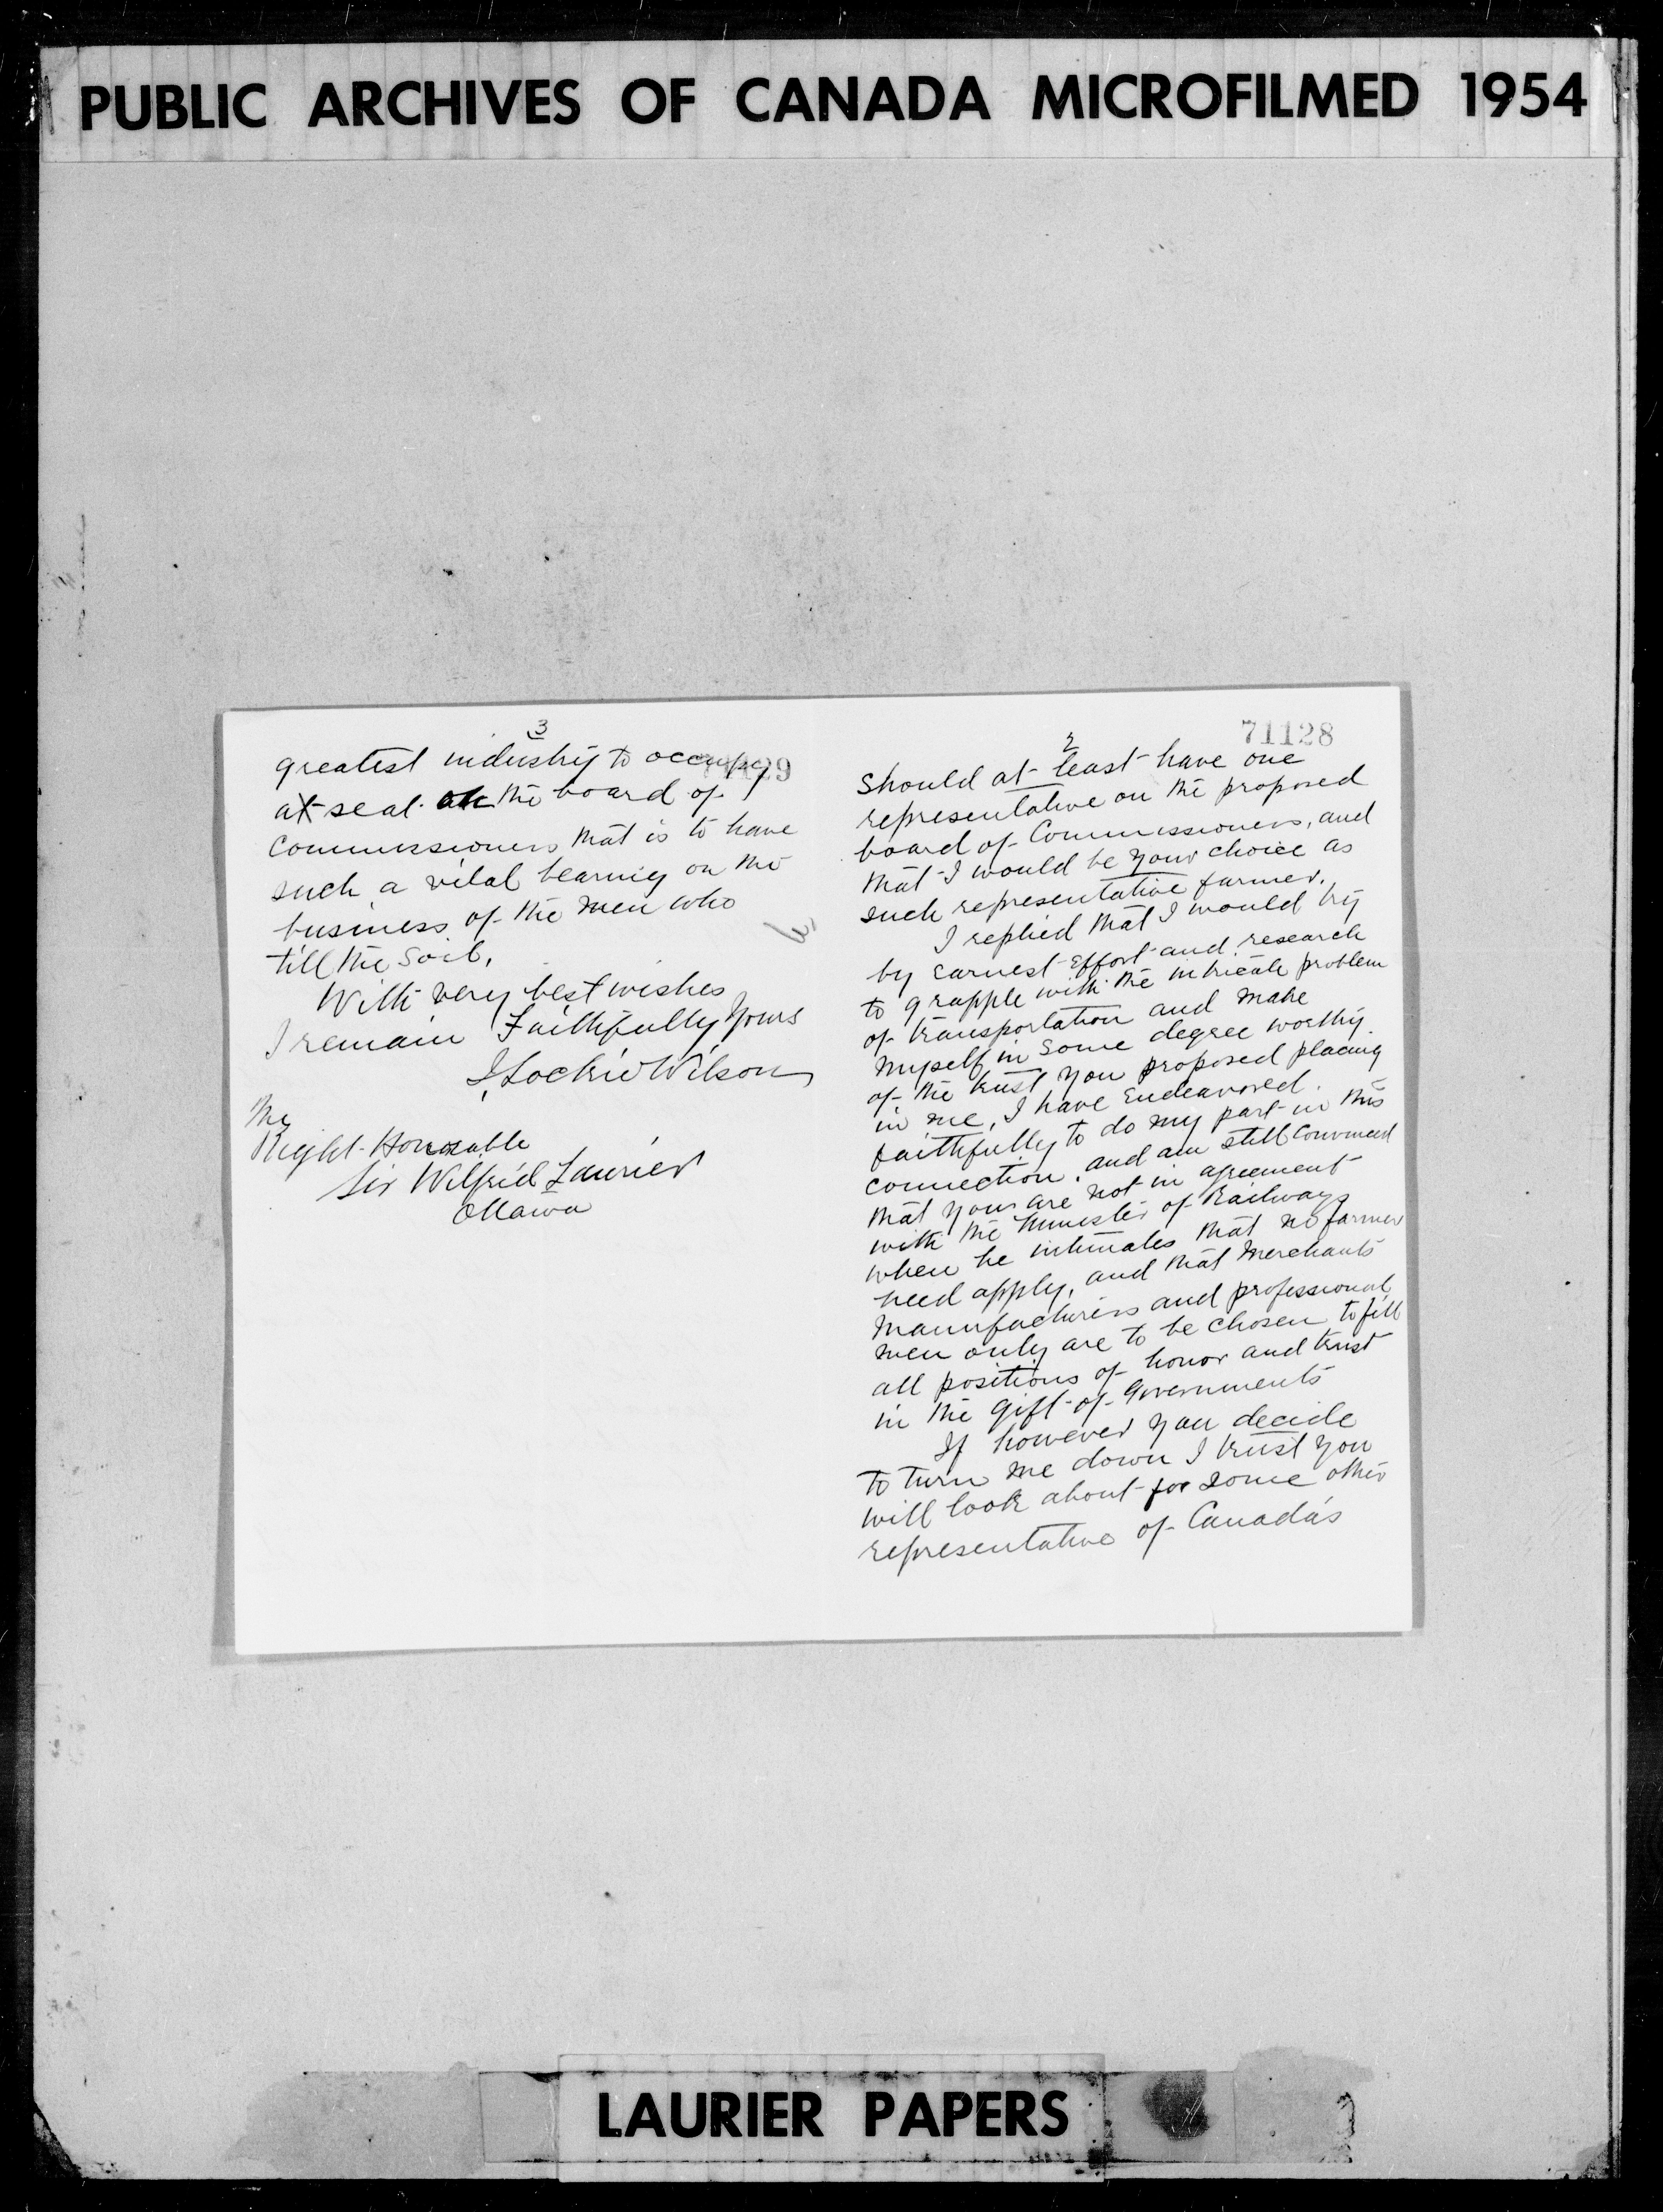 PUBLIC ARCHIVES OF CANADA MICROFILMED 1954
3
greatest industry to occupy
a seat on the board of
Commissioners that is to have
such a vital bearing on the
business of the men who
till the soil.
With very best wishes
I remain Faithfully Yours
J Lockie Wilson
The
Right Honorable
Sir Wilfrid Laurier
Ottawa
71128
2
should at least have one
representative on the proposed
board of Commissioners, and
that I would be your choice as
such representative farmer.
I replied that I would try
by earnest effort and research
to grapple with the intricate problem
of transportation and make
myself in some degree worthy
of the trust you proposed placing
in me, I have endeavored
faithfully to do my part in this
connection, and am still convinced
that you are not in agreement
with the Minister of Railways
when he intimates that no farmer
need apply, and that merchants
manufacturers and professional
men only are to be chosen to fill
all positions of honor and trust
in the gift of Governments
If however you decide
to turn me down I trust you
will look about for some other
representative of Canada's
LAURIER PAPERS